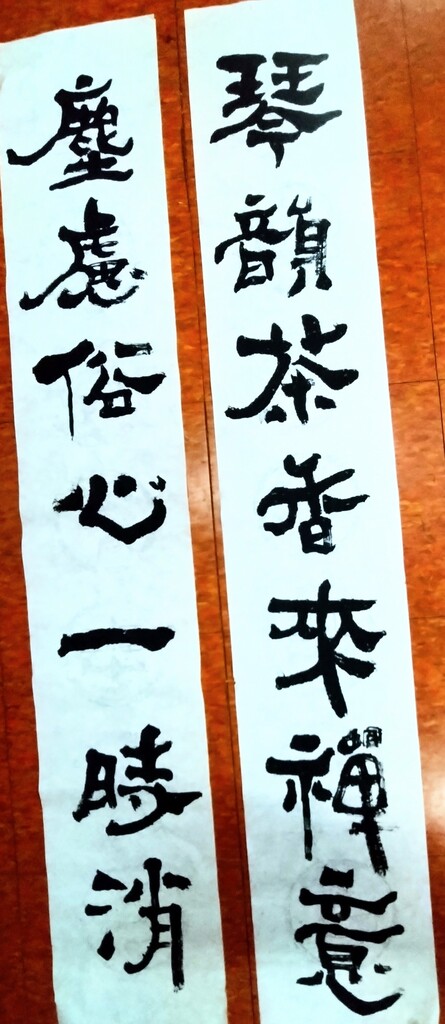 琴韻茶香來禪意
塵慮俗心一時消